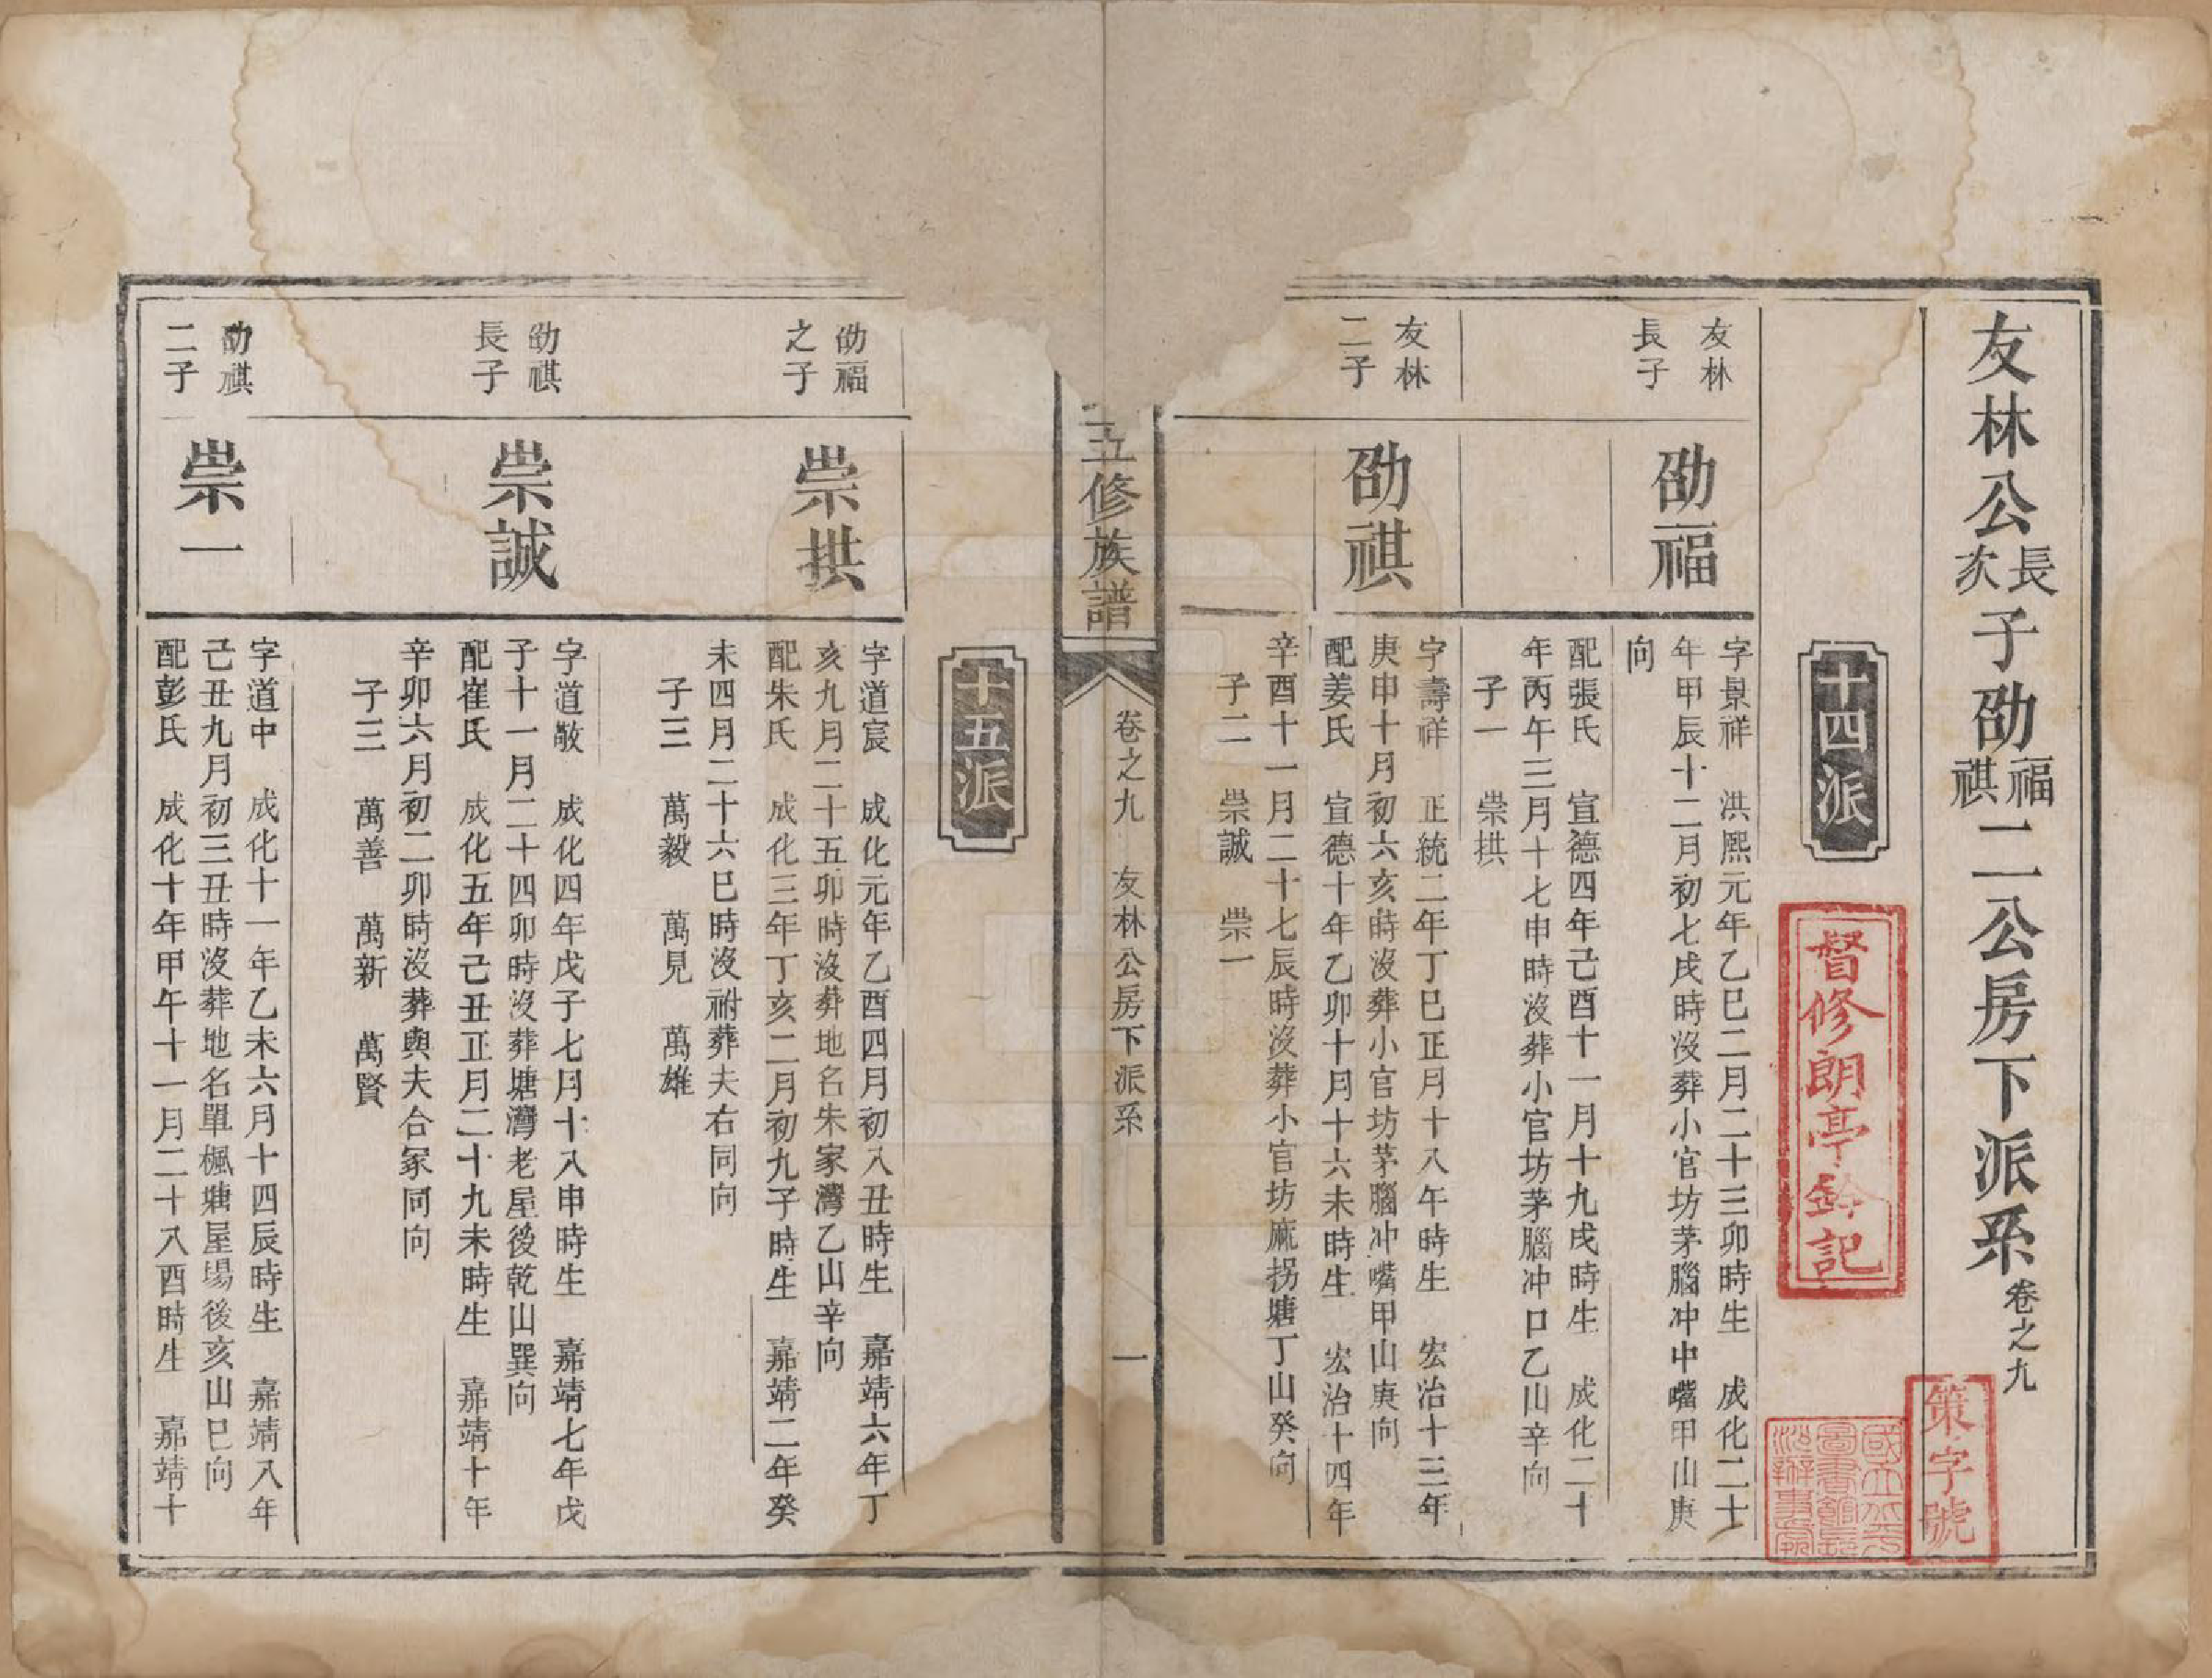 友林公長次子劭福祺二公房下派系卷之九
十四派
督修朗亭鈐記
策字號
友林
長子
劭福
字景祥　洪熙元年乙巳二月二十三卯時生　成化二十
年甲辰十二月初七戌時沒葬小官坊茅腦冲中嘴甲山庚
向
配張氏　宣德四年己酉十一月十九戌時生　成化二十
年丙午三月十七申時沒葬小官坊茅腦冲口乙山辛向
子一　崇拱
友林
二子
劭祺
字壽祥　正統二年丁巳正月十八午時生　宏治十三年
庚申十月初六亥時沒葬小官坊茅腦冲嘴甲山庚向
配姜氏　宣德十年乙卯十月十六未時生　宏治十四年
辛酉十一月二十七辰時沒葬小官坊麻拐塘丁山癸向
子二　崇誠　崇一
五修族譜
卷之九　友林公房下派系
一
十五派
劭福
之子
崇拱
字道宸　成化元年乙酉四月初八丑時生　嘉靖六年丁
亥九月二十五卯時沒葬地名朱家灣乙山辛向
配朱氏　成化三年丁亥二月初九子時生　嘉靖二年癸
未四月二十六巳時沒祔葬夫右同向
子三　萬毅　萬見　萬雄
劭祺
長子
崇誠
字道敬　成化四年戊子七月十八申時生　嘉靖七年戊
子十一月二十四卯時沒葬塘灣老屋後乾山巽向
配崔氏　成化五年己丑正月二十九未時生　嘉靖十年
辛卯六月初二卯時沒葬與夫合冢同向
子三　萬善　萬新　萬賢
劭祺
二子
崇一
字道中　成化十一年乙未六月十四辰時生　嘉靖八年
己丑九月初三丑時沒葬地名單楓塘屋場後亥山巳向
配彭氏　成化十年甲午十一月二十八酉時生　嘉靖十